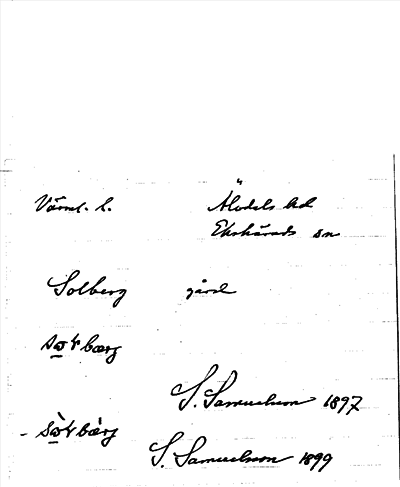 Värml. l. Älvdals hd
Ekshärads sn
Solberg gård
S. Samuelsson 1897
S. Samuelsson 1899